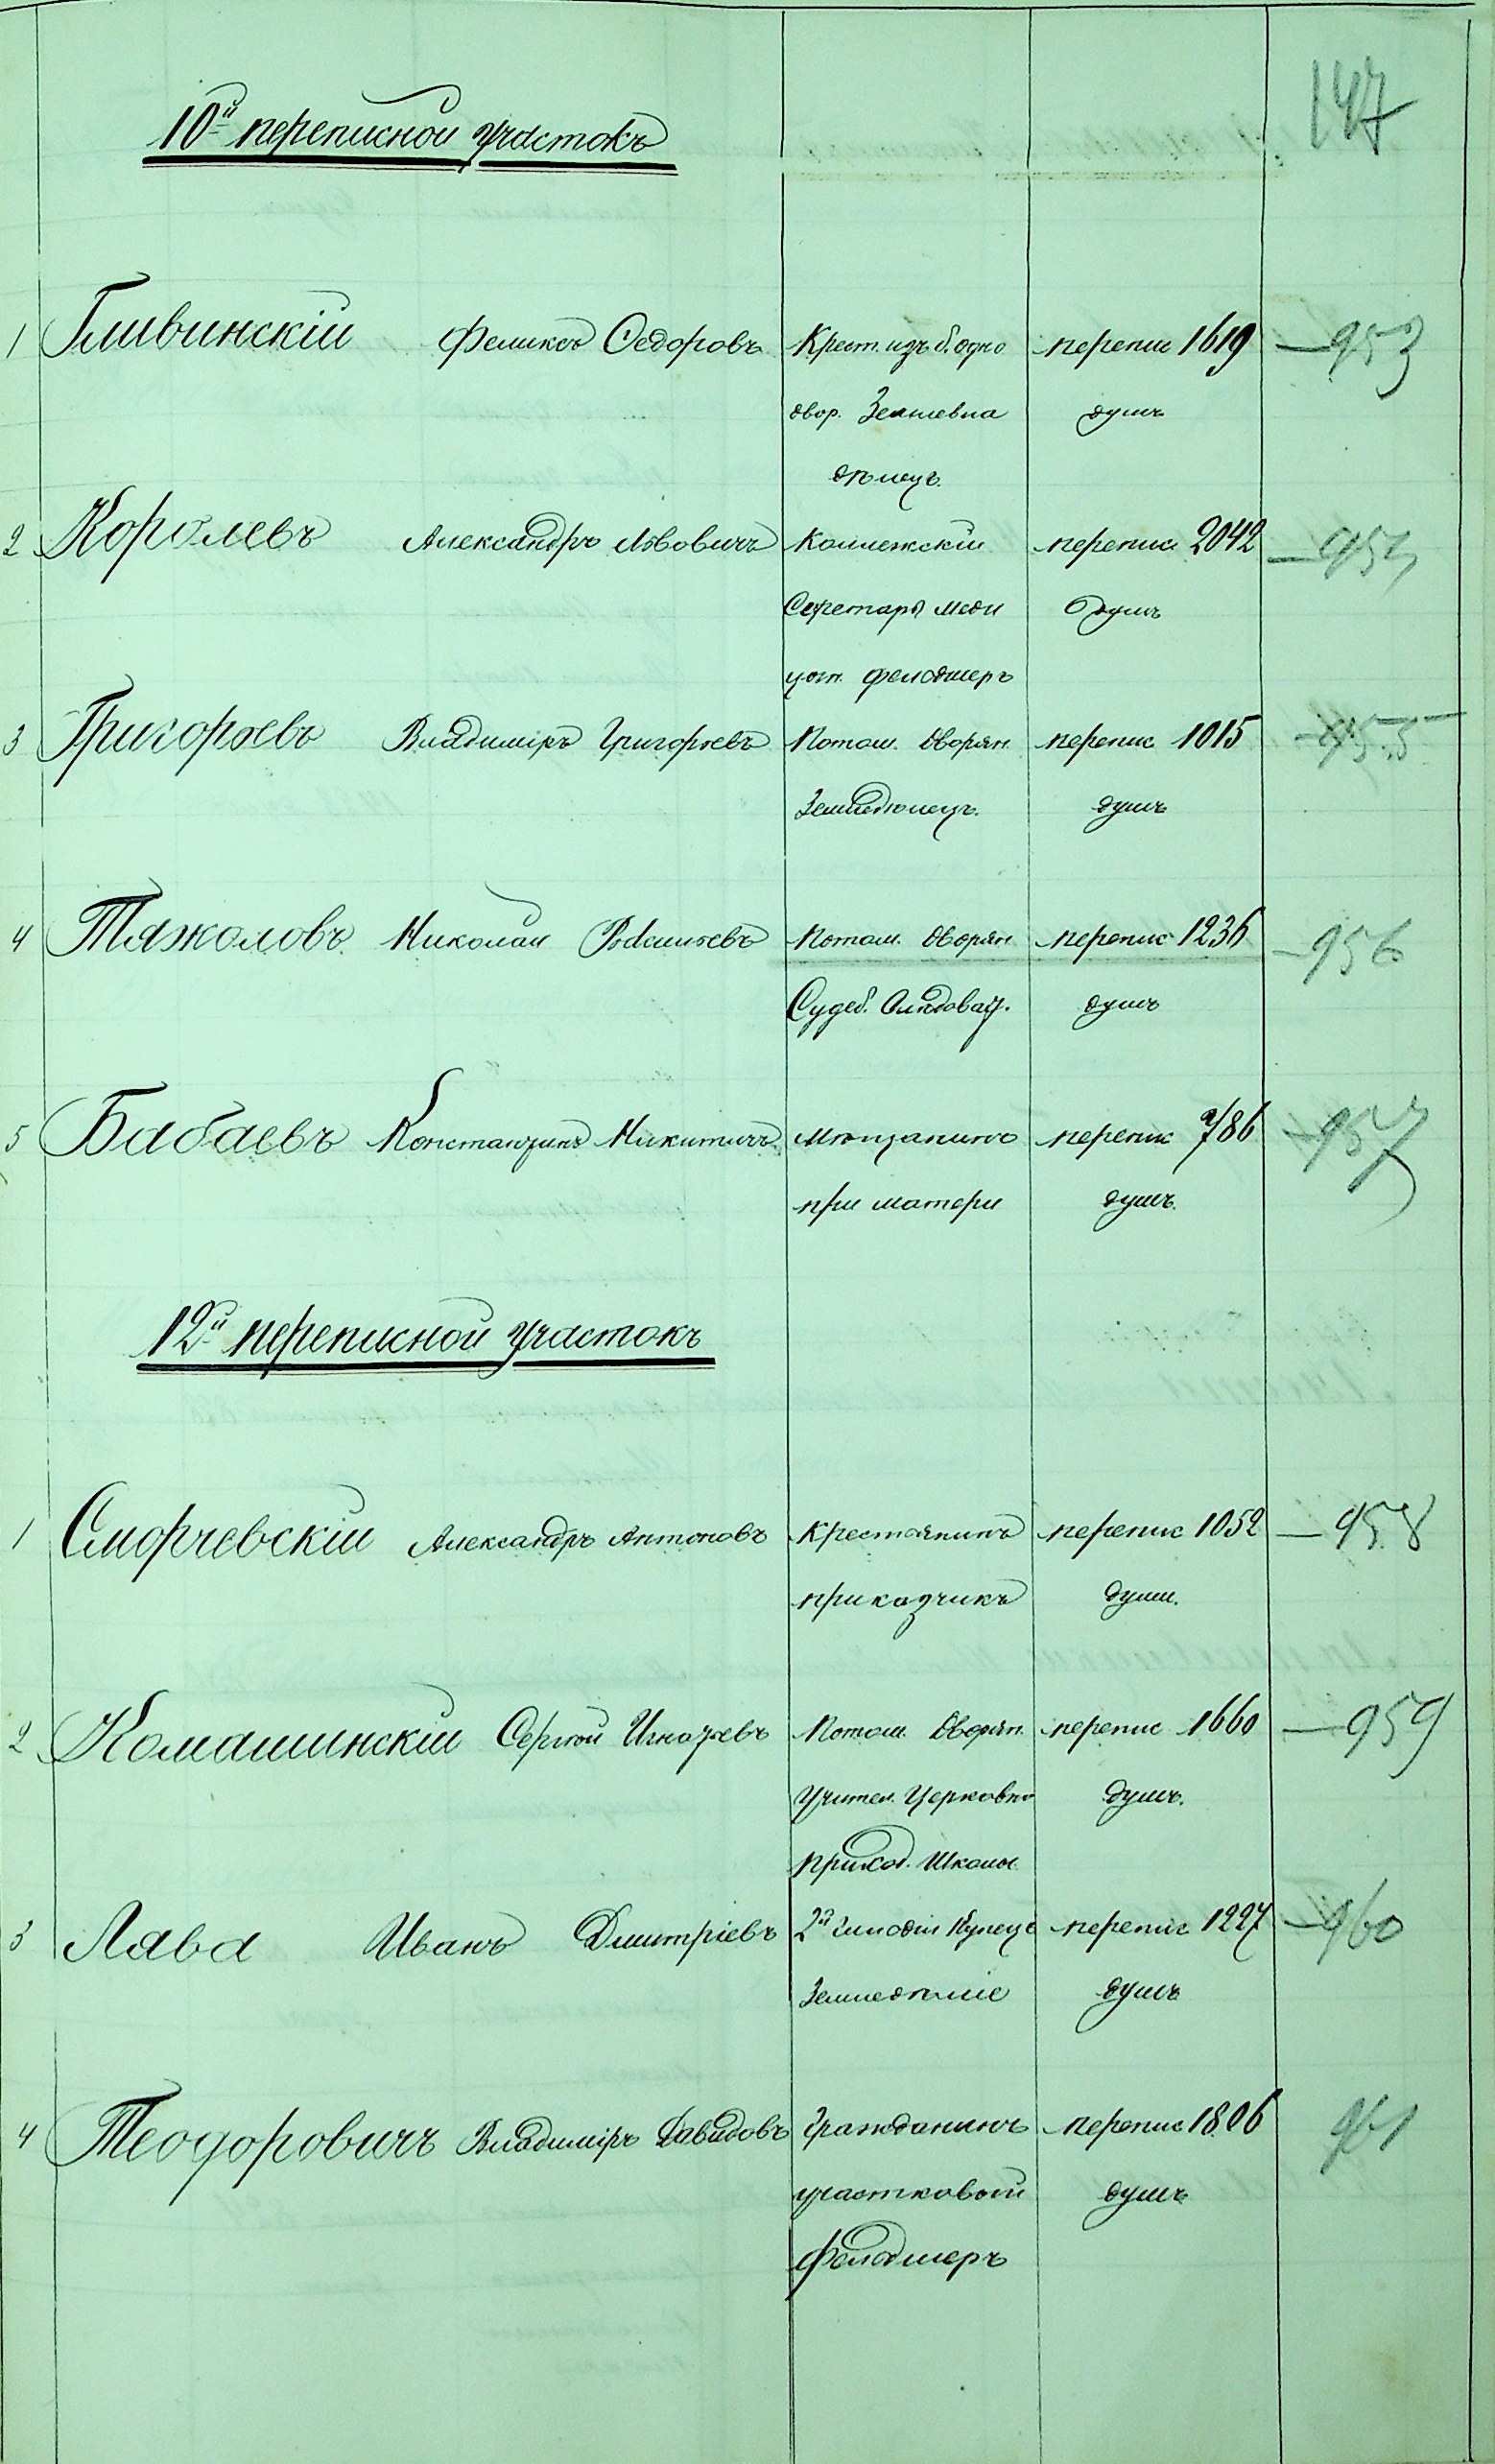 147
10й переписной участокъ
1 Гливинскій Феликсъ Федоровъ Крест. изъ б. одно перепис 1619 — 953
двор. Землевла душъ
дѣлецъ.
2 Королевъ Александръ Львовичъ Коллежскій перепис 2042 — 954
Секретарь меди душъ
цин. фельдшеръ
3 Григорьевъ Владиміръ Григорьевъ Потом. Дворян. перепис 1015 — 955
Землевладѣлецъ. душъ
4 Тяжеловъ Николай Васильевъ Потом. Дворян перепис 1236 — 956
Судеб. Слѣдоват. душъ
5 Бабаевъ Константинъ Никитичъ мѣщанинъ перепис 786 — 957
при матери душъ.
12й переписной участокъ
1 Сморчевскій Александръ Антоновъ Крестьянинъ перепис 1052 — 958
приказчикъ душ.
2 Комашинскій Сергѣй Игнатьевъ Потом. Дворян. перепис 1660 — 959
Учител. Церковно душъ.
приход. Школы.
3 Лява Иванъ Дмитріевъ 2й гильдіи Купецъ перепис 1227 — 960
Земледѣліе душъ
4 Теодоровичъ Владиміръ Давидовъ Гражданинъ перепис 1806 961
участковый душъ
фельдшеръ